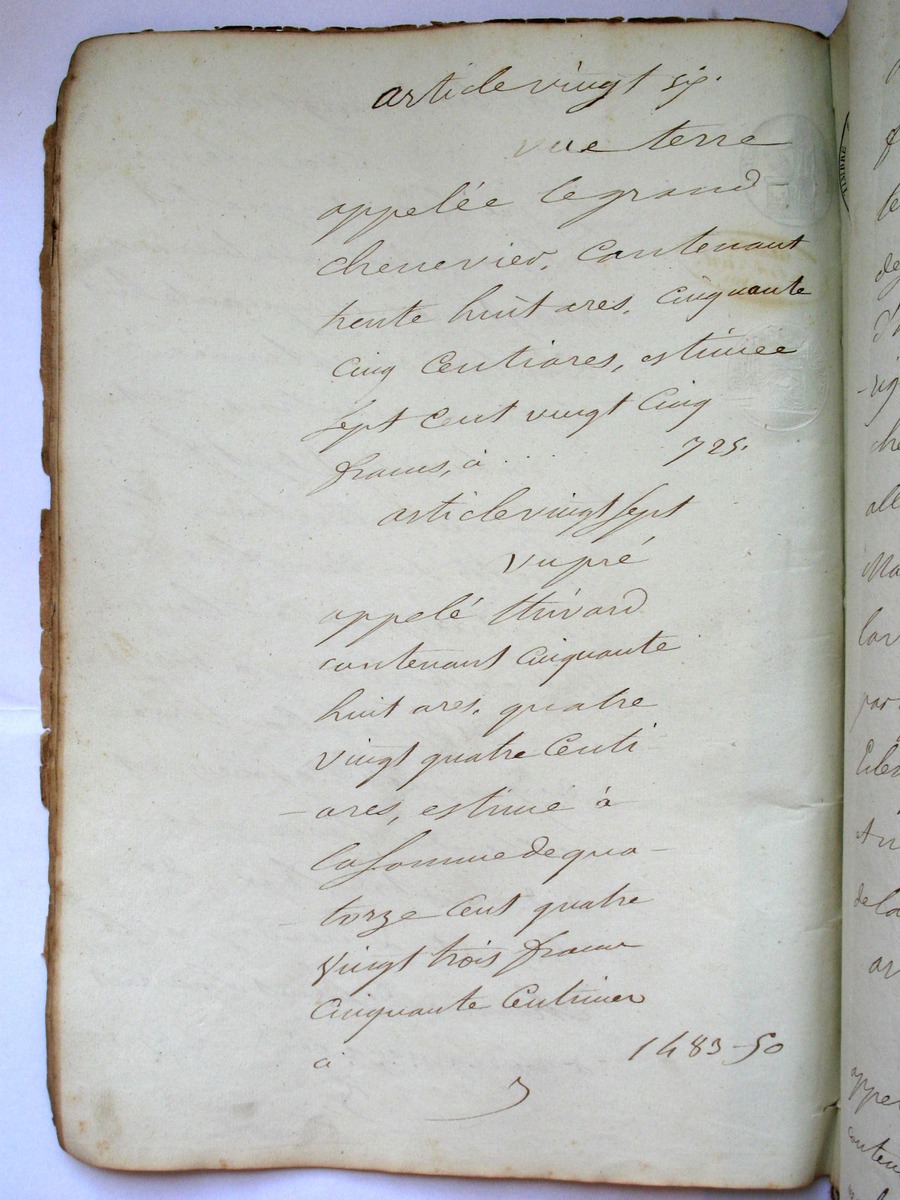 article vingt six.
une terre
appelée le grand
chenevier, contenant
trente huit ares, cinquante
cinq centiares, estimée
sept cent vingt cinq
francs, à . . . 725.
article vingt sept
un pré
appelé
contenant cinquante
huit ares, quatre
vingt quatre centi-
-ares, estimé à
la somme de qua-
torze cent quatre
vingt trois francs
cinquante centimes
à 1483-50
TIMBRE